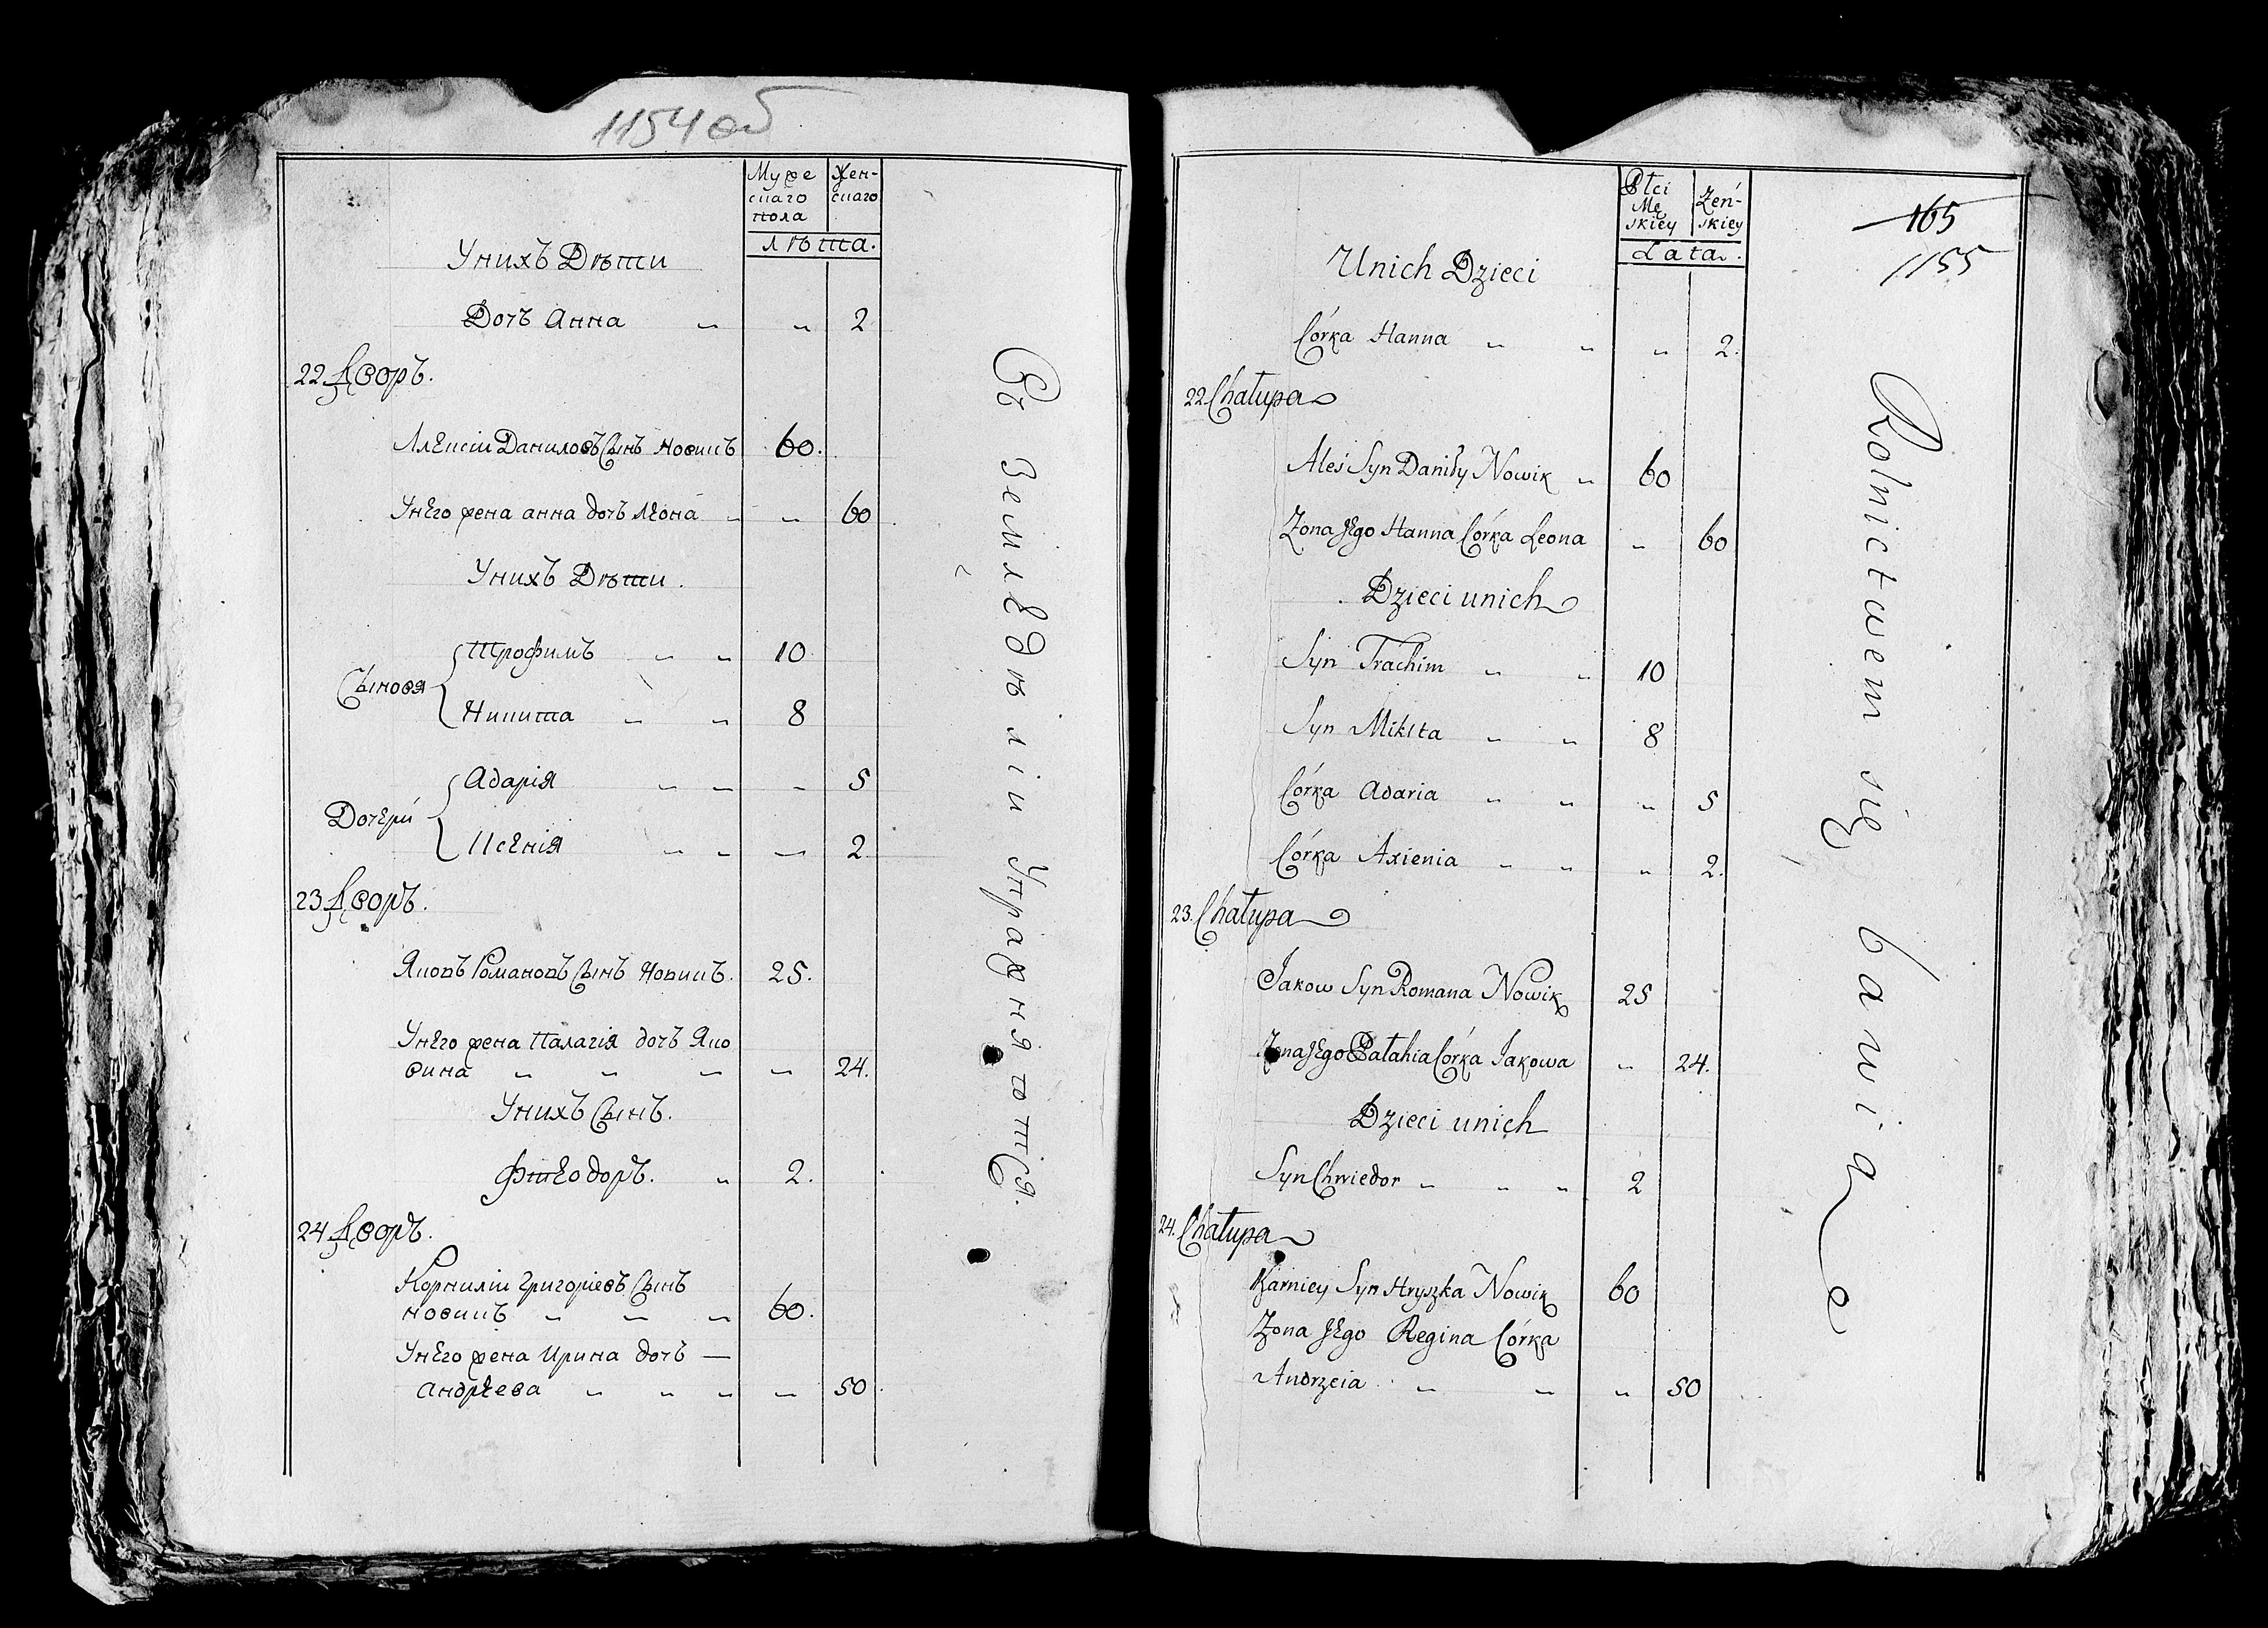 1154 об
Муже
скаго
пола
Жен-
скаго
лѣта.
У нихъ Дѣти
Дочъ Анна " " 2
22 Дворъ.
Алексіи Даниловъ Сынъ Новикъ 60.
У него жена анна дочъ леона " " 60
У нихъ Дѣти.
Сыновя
Трофимъ " " 10
Никита " " 8
Дочери
Адарія " " " 5
Ксенія " " " 2
23 Дворъ.
Яковъ Романовъ Сынъ Новикъ. 25.
У него жена Палагія дочъ Яко
вина " " " " 24.
У нихъ Сынъ.
Фтеодоръ. " 2.
24 Дворъ.
Корнилій Григоріевъ Сынъ
новикъ " " " 60.
У него жена Ирина дочъ —
андреева " " " " 50.
Въ земледѣліи УпражняютСя.
Płci
Mę
skiey
Żeń-
skiey
Lata.
165
1155
U nich Dzieci
Córka Hanna " " " 2.
22. Chałupa
Aleś Syn Daniły Nowik " 60
Zona Jego Hanna Córka Leona " 60
Dzieci u nich
Syn Trachim " " 10
Syn Mikita " " 8
Córka Adaria " " " 5
Córka Axienia " " " 2.
23. Chałupa
Jakow Syn Romana Nowik 25
Zona Jego Pałahia Córka Jakowa " 24.
Dzieci u nich
Syn Chwiedor " " " 2
24. Chałupa
Karniey Syn Hryszka Nowik 60
Zona Jego Regina Córka
Andrzeia " " " 50
Rolnictwem się bawią